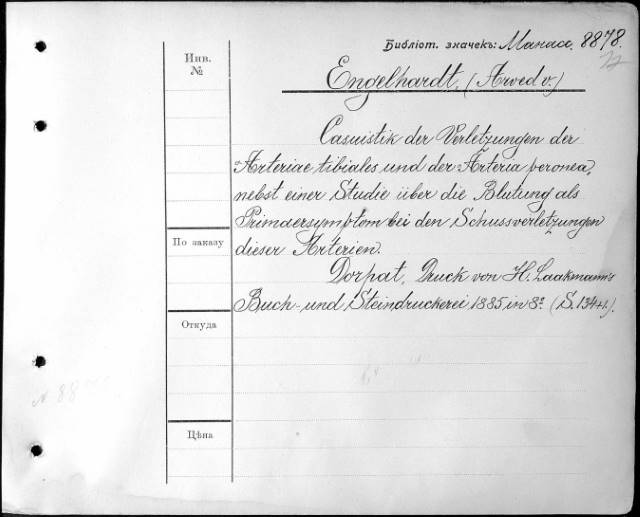 Библіот. значекъ: Манасс. 8878.
Инв.
№
Engelhardt, (Arved v.)
Casuistik der Verletzungen der
Arteriae tibiales und der Arteria peronea,
nebst einer Studie über die Blutung als
Primaersymptom bei den Schussverletzungen
dieser Arterien.
По заказу
Dorpat, Druck von H. Laakmann's
Buch- und Steindruckerei 1885 in 8º (S. 134+1).
Откуда
Цѣна